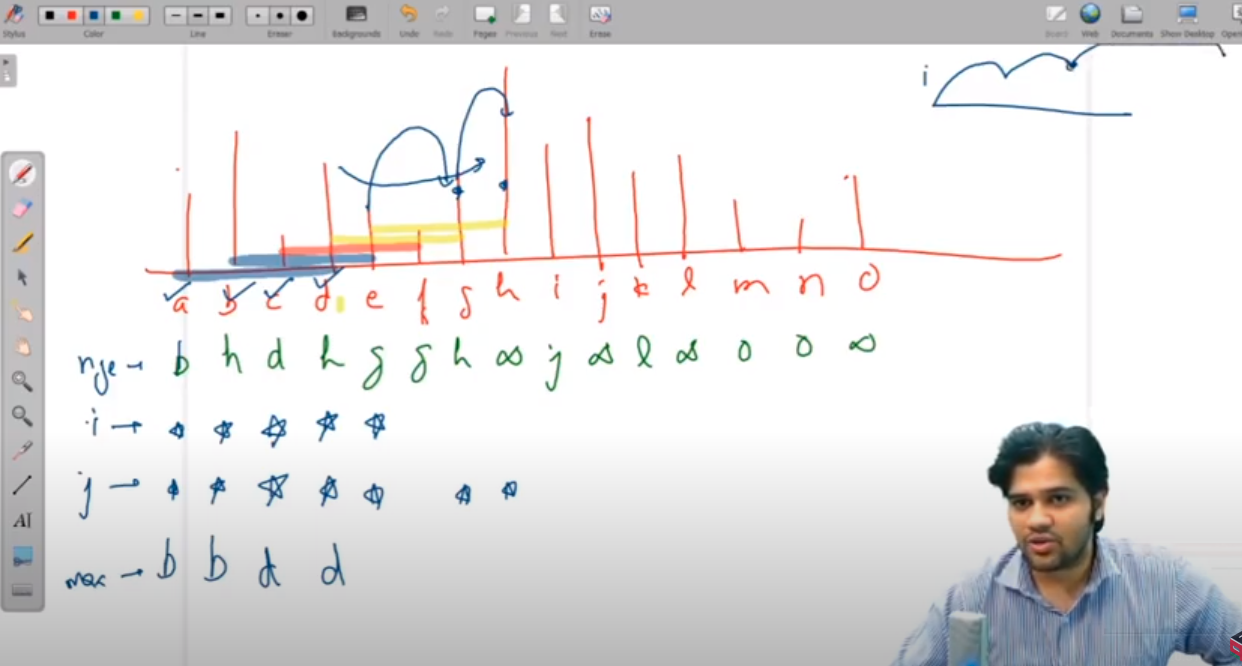 Stylus Color Line Eraser Backgrounds Undo Redo Pages Previous Next Erase Board Web Documents Show Desktop
i
a b c d e f g h i j k l m n o
nge → b h d h g g h ∞ j ∞ l ∞ o o ∞
i →
j →
max → b b d d
AI